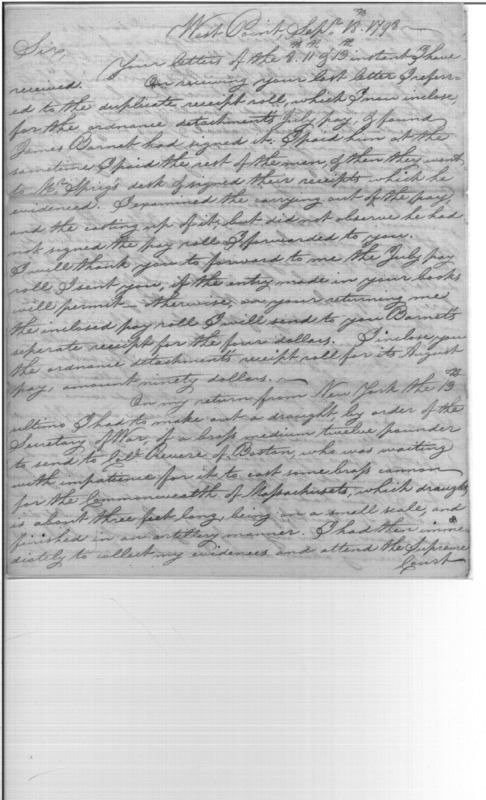 West Point, Sepr. 18th 1798
Sir,
Your letters of the 8th 11th & 13th instant I have
received. On receiving your last letter I referr-
ed to the duplicate receipt roll, which I now inclose,
for the ordnance detachments July pay, & found
James Barnet had signed it. I paid him at the
sametime I paid the rest of the men, & then they went
to Mr. Sprig's desk & signed their receipts which he
evidenced. I examined the carrying out of the pay,
and the casting up of it, but did not observe he had
not signed the pay roll I forwarded to you.
I will thank you to forward to me the July pay
roll I sent you, if the entry made in your books
will permit – otherwise, on your returning me
the inclosed pay roll I will send to you Barnets
seperate receipt for the four dollars. I inclose you
the ordnance detachments receipt roll for its August
pay, amount ninety dollars.
On my return from New York the 13th
ultimo I had to make out a draught by order of the
Secretary of War, of a brass medium twelve pounder
to send to Revere of Boston, who was waiting
with impatience for it to cast some brass cannon
for the Commonwealth of Massachusets, which draught
is about three feet long, being on a small scale, and
finished in an artillery manner. I had then imme-
diately to collect my evidences and attend the Supreme
Court